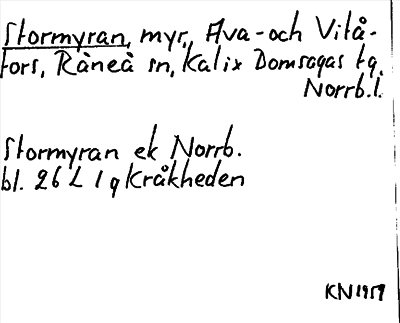 Stormyran, myr, Ava- och Vitå-
fors, Råneå sn, Kalix Domsagas tg.
Norrb.l.
Stormyran ek Norrb.
bl. 26 L 1 g Kråkheden
KN 1959